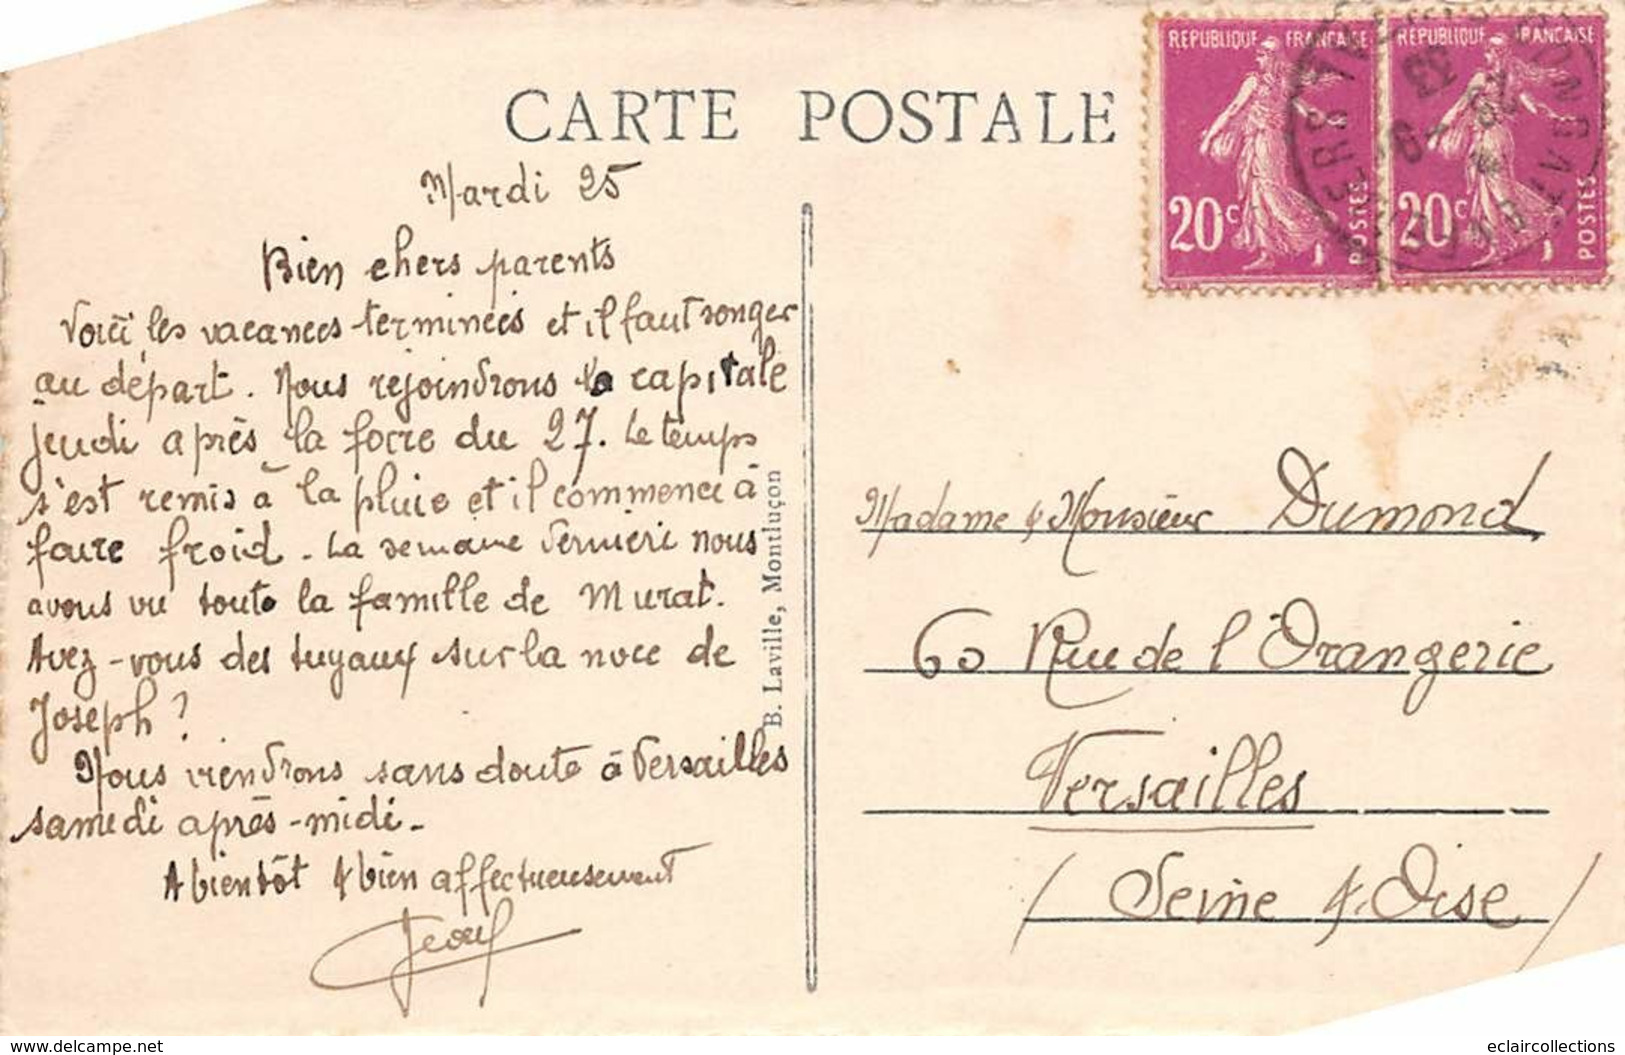 CARTE POSTALE
REPUBLIQUE FRANCAISE
20c
POSTES
REPUBLIQUE FRANCAISE
20c
POSTES
33
Mardi 25
Bien chers parents
Voici les vacances terminées et il faut songer
au départ. Nous rejoindrons la capitale
jeudi après la foire du 27. Le temps
s'est remis à la pluie et il commence à
faire froid. La semaine dernière nous
avons vu toute la famille de Murat.
Avez-vous des tuyaux sur la noce de
Joseph ?
Nous viendrons sans doute à Versailles
samedi après-midi.
A bientôt & bien affectueusement
B. Laville, Montluçon
Madame & Monsieur Dumond
60 Rue de l'Orangerie
Versailles
(Seine & Oise)
www.delcampe.net
eclaircollections